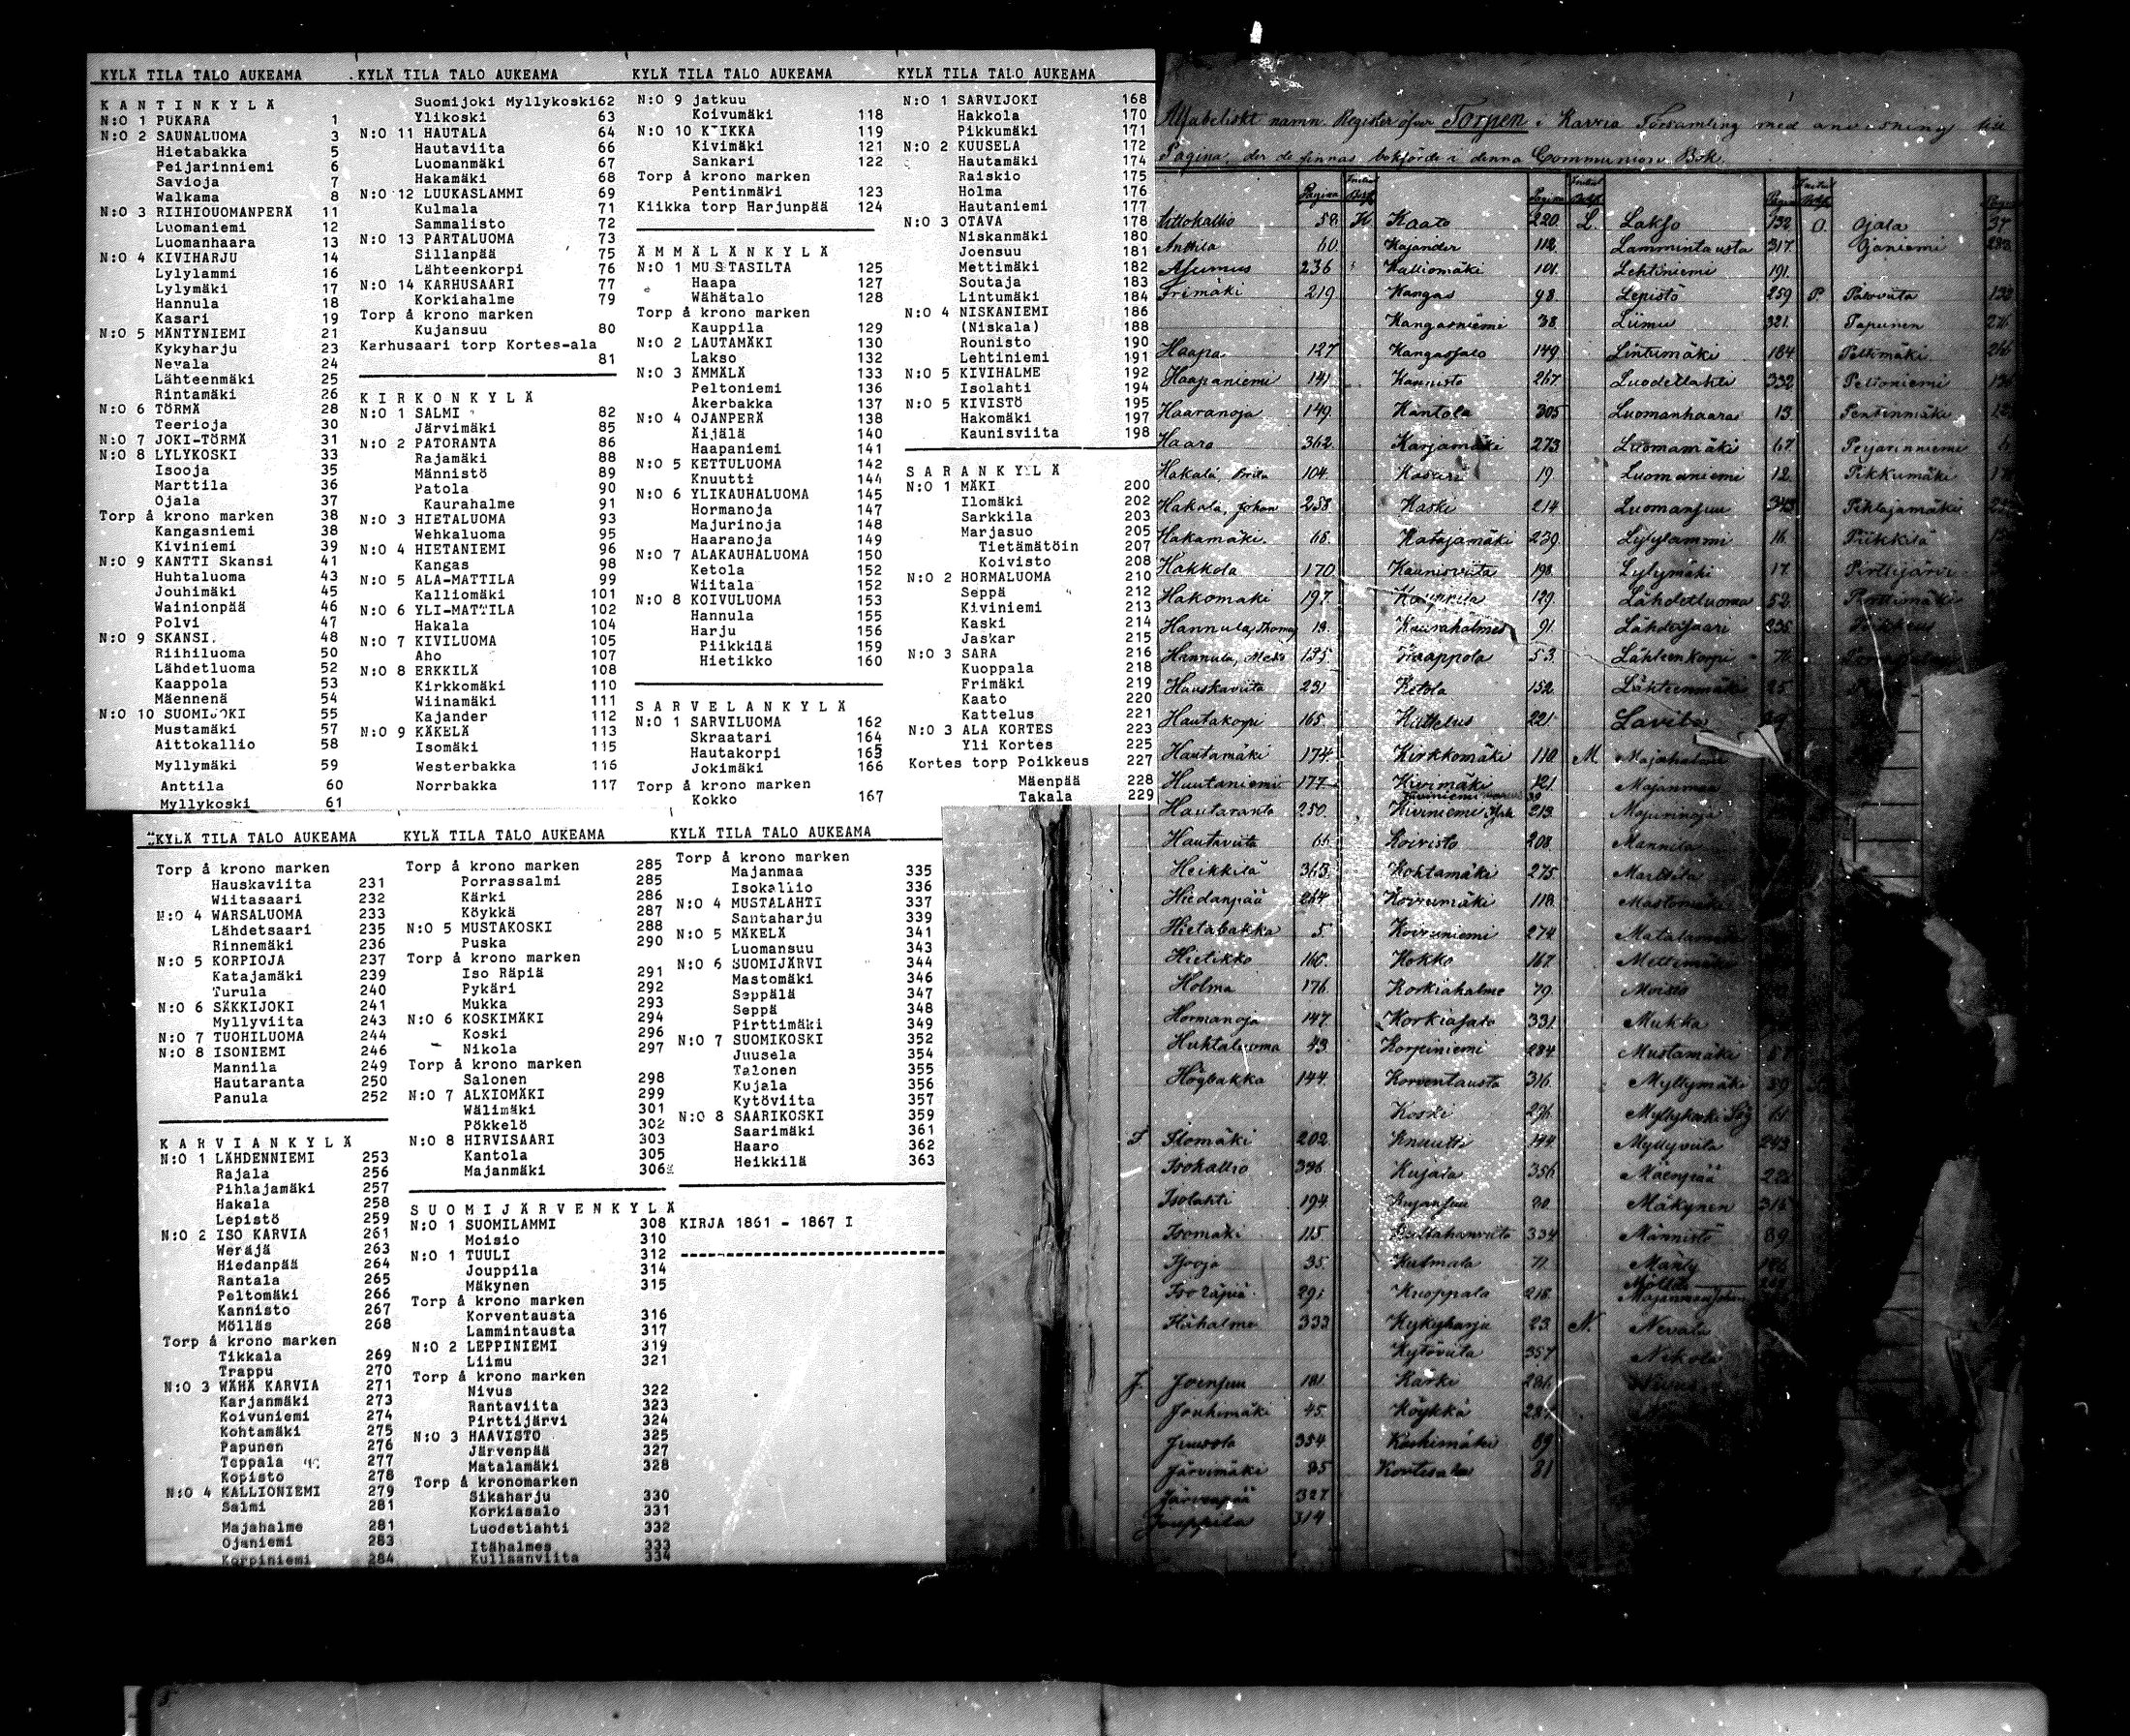 KYLÄ TILA TALO AUKEAMA
K A N T I N K Y L Ä
N:O 1 PUKARA 1
N:O 2 SAUNALUOMA 3
Hietabakka 5
Peijarinniemi 6
Savioja 7
Walkama 8
N:O 3 RIIHIOUOMANPERÄ 11
Luomaniemi 12
Luomanhaara 13
N:O 4 KIVIHARJU 14
Lylylammi 16
Lylymäki 17
Hannula 18
Kasari 19
N:O 5 MÄNTYNIEMI 21
Kykyharju 23
Nevala 24
Lähteenmäki 25
Rintamäki 26
N:O 6 TÖRMÄ 28
Teerioja 30
N:O 7 JOKI-TÖRMÄ 31
N:O 8 LYLYKOSKI 33
Isooja 35
Marttila 36
Ojala 37
Torp å krono marken 38
Kangasniemi 38
Kiviniemi 39
N:O 9 KANTTI Skansi 41
Huhtaluoma 43
Jouhimäki 45
Wainionpää 46
Polvi 47
N:O 9 SKANSI. 48
Riihiluoma 50
Lähdetluoma 52
Kaappola 53
Mäennenä 54
N:O 10 SUOMIJOKI 55
Mustamäki 57
Aittokallio 58
Myllymäki 59
Anttila 60
Myllykoski 61
KYLÄ TILA TALO AUKEAMA
Suomijoki Myllykoski 62
Ylikoski 63
N:O 11 HAUTALA 64
Hautaviita 66
Luomanmäki 67
Hakamäki 68
N:O 12 LUUKASLAMMI 69
Kulmala 71
Sammalisto 72
N:O 13 PARTALUOMA 73
Sillanpää 75
Lähteenkorpi 76
N:O 14 KARHUSAARI 77
Korkiahalme 79
Torp å krono marken
Kujansuu 80
Karhusaari torp Kortes-ala
81
K I R K O N K Y L Ä
N:O 1 SALMI 82
Järvimäki 85
N:O 2 PATORANTA 86
Rajamäki 88
Männistö 89
Patola 90
Kaurahalme 91
N:O 3 HIETALUOMA 93
Wehkaluoma 95
N:O 4 HIETANIEMI 96
Kangas 98
N:O 5 ALA-MATTILA 99
Kalliomäki 101
N:O 6 YLI-MATTILA 102
Hakala 104
N:O 7 KIVILUOMA 105
Aho 107
N:O 8 ERKKILÄ 108
Kirkkomäki 110
Wiinamäki 111
Kajander 112
N:O 9 KÄKELÄ 113
Isomäki 115
Westerbakka 116
Norrbakka 117
KYLÄ TILA TALO AUKEAMA
N:O 9 jatkuu
Koivumäki 118
N:O 10 KIIKKA 119
Kivimäki 121
Sankari 122
Torp å krono marken
Pentinmäki 123
Kiikka torp Harjunpää 124
Ä M M Ä L Ä N K Y L Ä
N:O 1 MUSTASILTA 125
Haapa 127
Wähätalo 128
Torp å krono marken
Kauppila 129
N:O 2 LAUTAMÄKI 130
Lakso 132
N:O 3 ÄMMÄLÄ 133
Peltoniemi 136
Åkerbakka 137
N:O 4 OJANPERÄ 138
Äijälä 140
Haapaniemi 141
N:O 5 KETTULUOMA 142
Knuutti 144
N:O 6 YLIKAUHALUOMA 145
Hormanoja 147
Majurinoja 148
Haaranoja 149
N:O 7 ALAKAUHALUOMA 150
Ketola 152
Wiitala 152
N:O 8 KOIVULUOMA 153
Hannula 155
Harju 156
Piikkilä 159
Hietikko 160
S A R V E L A N K Y L Ä
N:O 1 SARVILUOMA 162
Skraatari 164
Hautakorpi 165
Jokimäki 166
Torp å krono marken
Kokko 167
KYLÄ TILA TALO AUKEAMA
N:O 1 SARVIJOKI 168
Hakkola 170
Pikkumäki 171
N:O 2 KUUSELA 172
Hautamäki 174
Raiskio 175
Holma 176
Hautaniemi 177
N:O 3 OTAVA 178
Niskanmäki 180
Joensuu 181
Mettimäki 182
Soutaja 183
Lintumäki 184
N:O 4 NISKANIEMI 186
(Niskala) 188
Rounisto 190
Lehtiniemi 191
N:O 5 KIVIHALME 192
Isolahti 194
N:O 5 KIVISTÖ 195
Hakomäki 197
Kaunisviita 198
S A R A N K Y L Ä
N:O 1 MÄKI 200
Ilomäki 202
Sarkkila 203
Marjasuo 205
Tietämätöin 207
Koivisto 208
N:O 2 HORMALUOMA 210
Seppä 212
Kiviniemi 213
Kaski 214
Jaskar 215
N:O 3 SARA 216
Kuoppala 218
Frimäki 219
Kaato 220
Kattelus 221
N:O 3 ALA KORTES 223
Yli Kortes 225
Kortes torp Poikkeus 227
Mäenpää 228
Takala 229
KYLÄ TILA TALO AUKEAMA
Torp å krono marken
Hauskaviita 231
Wiitasaari 232
N:O 4 WARSALUOMA 233
Lähdetsaari 235
Rinnemäki 236
N:O 5 KORPIOJA 237
Katajamäki 239
Turula 240
N:O 6 SÄKKIJOKI 241
Myllyviita 243
N:O 7 TUOHILUOMA 244
N:O 8 ISONIEMI 246
Mannila 249
Hautaranta 250
Panula 252
K A R V I A N K Y L Ä
N:O 1 LÄHDENNIEMI 253
Rajala 256
Pihlajamäki 257
Hakala 258
Lepistö 259
N:O 2 ISO KARVIA 261
Weräjä 263
Hiedanpää 264
Rantala 265
Peltomäki 266
Kannisto 267
Mölläs 268
Torp å krono marken
Tikkala 269
Trappu 270
N:O 3 WÄHÄ KARVIA 271
Karjanmäki 273
Koivuniemi 274
Kohtamäki 275
Papunen 276
Teppala 277
Kopisto 278
N:O 4 KALLIONIEMI 279
Salmi 281
Majahalme 281
Ojaniemi 283
Korpiniemi 284
KYLÄ TILA TALO AUKEAMA
Torp å krono marken 285
Porrassalmi 285
Kärki 286
Köykkä 287
N:O 5 MUSTAKOSKI 288
Puska 290
Torp å krono marken
Iso Räpiä 291
Pykäri 292
Mukka 293
N:O 6 KOSKIMÄKI 294
Koski 296
Nikola 297
Torp å krono marken
Salonen 298
N:O 7 ALKIOMÄKI 299
Wälimäki 301
Pökkelö 302
N:O 8 HIRVISAARI 303
Kantola 305
Majanmäki 306
S U O M I J Ä R V E N K Y L Ä
N:O 1 SUOMILAMMI 308
Moisio 310
N:O 1 TUULI 312
Jouppila 314
Mäkynen 315
Torp å krono marken
Korventausta 316
Lammintausta 317
N:O 2 LEPPINIEMI 319
Liimu 321
Torp å krono marken
Nivus 322
Rantaviita 323
Pirttijärvi 324
N:O 3 HAAVISTO 325
Järvenpää 327
Matalamäki 328
Torp å kronomarken
Sikaharju 330
Korkiasalo 331
Luodetlahti 332
Itähalmes 333
Kullaanviita 334
KYLÄ TILA TALO AUKEAMA
Torp å krono marken
Majanmaa 335
Isokallio 336
N:O 4 MUSTALAHTI 337
Santaharju 339
N:O 5 MÄKELÄ 341
Luomansuu 343
N:O 6 SUOMIJÄRVI 344
Mastomäki 346
Seppälä 347
Seppä 348
Pirttimäki 349
N:O 7 SUOMIKOSKI 352
Juusela 354
Talonen 355
Kujala 356
Kytöviita 357
N:O 8 SAARIKOSKI 359
Saarimäki 361
Haaro 362
Heikkilä 363
KIRJA 1861 - 1867 I
Alfabetiskt namn Register öfver Torpen i Karvia Församling med anvisning till
Pagina, der de finnas bokförde i denna Communion Bok.
Pagina
Aittokallio 58
Anttila 60
Asumus 236
Frimäki 219
Haapa 127
Haapaniemi 141
Haaranoja 149
Haaro 362
Hakala, Brita 104
Hakala, Johan 258
Hakamäki 68
Hakkola 170
Hakomäki 197
Hannula, Thomas 18
Hannula, 155
Hauskaviita 231
Hautakorpi 165
Hautamäki 174
Hautaniemi 177
Hautaranta 250
Hautaviita 66
Heikkilä 363
Hiedanpää 264
Hietabakka 5
Hietikko 160
Holma 176
Hormanoja 147
Huhtaluoma 43
Högbakka 144
I Ilomäki 202
Isokallio 336
Isolahti 194
Isomäki 115
Isooja 35
Iso Räpiä 291
Itähalme 333
J Joensuu 181
Jouhimäki 45
Juusola 354
Järvimäki 85
Järvenpää 327
Jouppila 314
K Kaato 220
Kajander 112
Kalliomäki 101
Kangas 98
Kangasniemi 38
Kangassalo 149
Kannisto 267
Kantola 305
Karjamäki 273
Kasari 19
Kaski 214
Katajamäki 239
Kaunisviita 198
Kauppila 129
Kaurahalmes 91
Kaappola 53
Ketola 152
Kattelus 221
Kirkkomäki 110
Kivimäki 121
Kiviniemi 39
Kiviniemi 213
Koivisto 208
Kohtamäki 275
Koivumäki 118
Koivuniemi 274
Kokko 167
Korkiahalme 79
Korkiasalo 331
Korpiniemi 284
Korventausta 316
Koski 296
Knuutti 144
Kujala 356
Kujansuu 80
Kullahanviita 334
Kulmala 71
Kuoppala 218
Kykyharju 23
Kytöviita 357
Kärki 286
Köykkä 287
Koskimäki 89
Kortesala 81
L. Lakso 132
Lammintausta 317
Lehtiniemi 191
Lepistö 259
Liimu 321
Lintumäki 184
Luodetlahti 332
Luomanhaara 13
Luomamäki 67
Luomaniemi 12
Luomansuu 343
Lylylammi 16
Lylymäki 17
Lähdetluoma 52
Lähdetsaari 235
Lähteenkorpi 76
Lähteenmäki 25
Lavila
M Majahalme
Majanmaa
Majurinoja
Mannila
Marttila
Mastomäki
Matalamäki
Mettimäki
Moisio
Mukka
Mustamäki 57
Myllymäki 59
Myllykoski 61
Myllyviita 243
Mäenpää 228
Mäkynen 315
Männistö 89
Mänty 186
N. Nevala
Nikola
Nivus
O. Ojala 37
Ojaniemi 283
P. Paloviita 132
Papunen 276
Peltomäki 266
Peltoniemi 136
Pentinmäki
Peijarinniemi 6
Pikkumäki
Pihlajamäki
Piikkilä
Pirttijärvi
Pirttimäki
Poikkeus